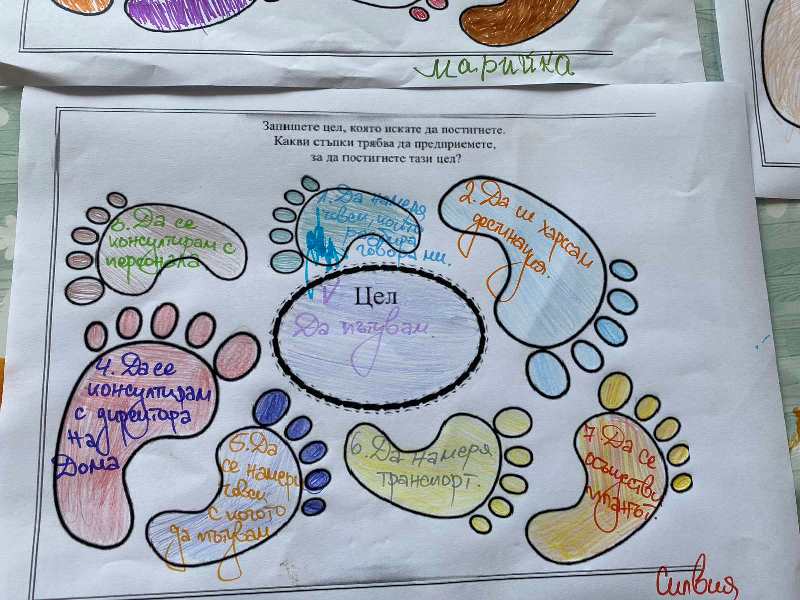 Марийка
Запишете цел, която искате да постигнете.
Какви стъпки трябва да предприемете,
за да постигнете тази цел?
1. Да намеря
човек, който
разбира
говора ми.
2. Да си харесам
дестинация.
3. Да се
консултирам с
персонала
Цел
Да пътувам
4. Да се
консултирам
с директора
на
Дома
5. Да
се намери
човек
с когото
да пътувам
6. Да намеря
транспорт.
7. Да се
осъществи
планът.
Силвия